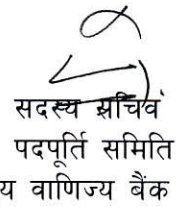 सदस्य सचिव
पदपूर्ति समिति
य वाणिज्य बैंक